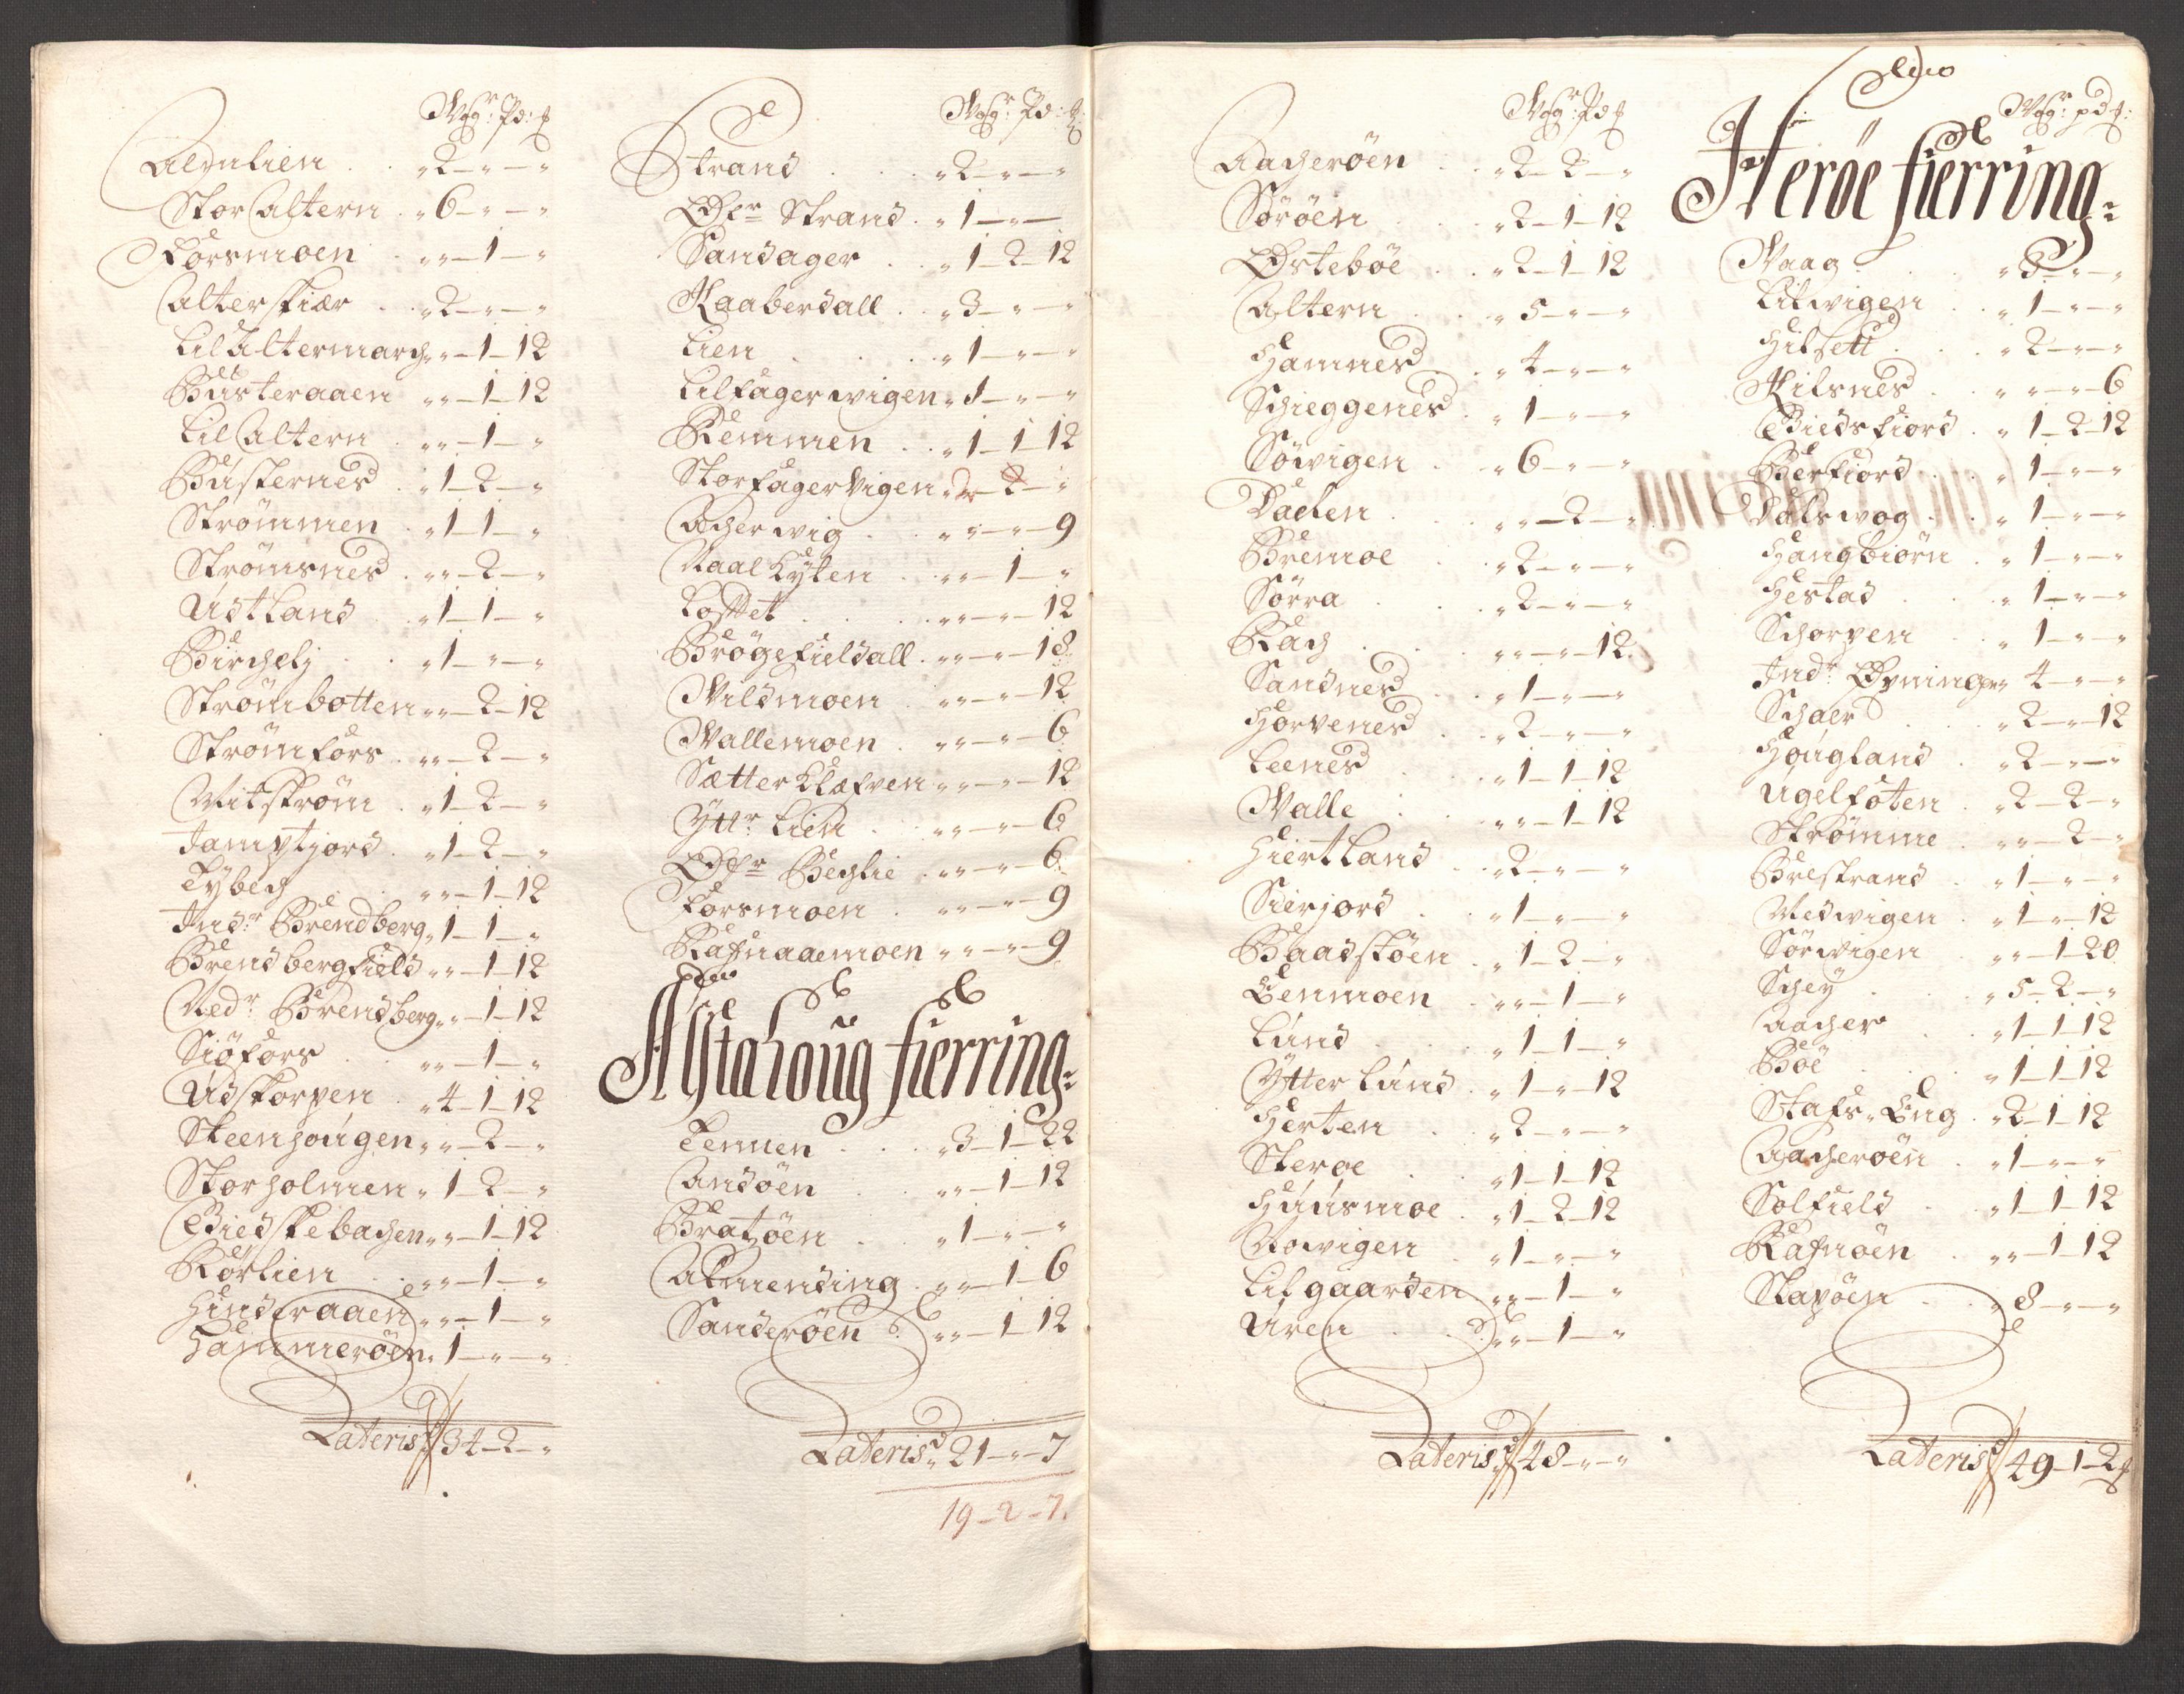 Wogr: Pd: #
Aldulien . . „2-„-„
Stor Altern . „6-„-„
Forsmoen . „„-1-„
Alterskiær . „2-„-„
Lil Altermarch „„-1-12
Busteraaen „„-1-12
Lil Altern . „„-1-„
Busternes . „1-2-„
Strømmen . „1-1-„
Strømsnes . „„-2-„
Ustland . „1-1-„
Birchelj . . „1-„-„
Strømbotten „„-2-12
Strømfors . „„-2-„
Mitstrøm . „1-2-„
Jamptjord . „1-2-„
Tybech . . „„-1-12
Indr Brendberg „1-1-„
Brendbergfield „„-1-12
Nedr Brendberg „„-1-12
Siøfors . „„-1-„
Udskorpen . „4-1-12
Steenhougen „„-2-„
Storholmen „1-2-„
Biedskebachen „„-1-12
Rørlien . . „„-1-„
Hinderaaen „„-1-„
Hammerøen „1-„-„
Lateris 34-2-„
Wogr: Pd: #
Strand . . . „2-„-„
Øfr Strand . „1-„-
Sandager . „1-2-12
Haaberdall . „3-„-„
Lien . . . „1-„-„
Lilfagerwigen „1-„-„
Remmen . . „1-1-12
StorfagerVigen „2-„
Acherwig . „„-„-9
Naalkylen . „„-1-„
Lostet . . . „„-„-12
Brøgefieldall . „„-„-18
Wildmoen . „„-„-12
Wallemoen . „„-„-6
Sætterklæfven „„-„-12
Yttr Lien . . „„-„-6
Øfr Bechlie . „„-„-6
Forsmoen . „„-„-9
Rafnaaemoen „„-„-9
Alstahoug fierring:
Tennen . . . „3-1-22
Andøen . . „„-1-12
Bratøen . . „1-„-„
Almending . „„-1-6
Sanderøen . „„-1-12
Lateris 21-„-7
19-2-7.
Wogr: Pd #
Aacherøen . . „2-2-„
Sørøen . . „2-1-12
Østebøe . . „2-1-12
Altern . . „5-„-„
Hamnes . . „4-„-„
Schieggenes . „1-„-„
Søvigen . „6-„-„
Dallen . . „„-2-„
Bremoe . „2-„-„
Sørra . . „2-„-„
Rach . . „„-„-12
Sandnes . „1-„-„
Horvenes . „2-„-„
Leenes . „1-1-12
Walle . . „„-1-12
Hiertland . „2-„-„
Sierjord . „1-„-„
Baadstøen . „1-2-„
Eenmoen . „„-1-„
Lund . . „1-1-„
Ytter Lund . „1-„-12
Herten . „2-„-„
Sterøe . „1-1-12
Huusmoe . „1-2-12
Novigen . „1-„-„
Lilgaarden „„-1-„
Uren . . „„-1-„
Lateris 48-„-„
Wogr: pd #:
Herøe fierring:
Waag . . . „3-„-„
Lilwigen . . „1-„-„
Hilsett . . . „2-„-„
Hilsnes . . „„-„-6
Biedsfiord . „1-2-12
Berfiord . . „1-„-„
Dalswog . . „1-„-„
Hangbiørn . „1-„-„
Hestad . . „1-„-„
Schorpen . „1-„-„
Indr Øyning „4-„-„
Schaer . „2-„-12
Hougland . „2-„-„
Ugelfoten . „2-2-„
Strømme . „„-2-„
Brestrand . „1-„-„
Medwigen . „1-„-12
Sørwigen . „„-1-20
Schey . . „5-2-„
Aacher . . „1-1-12
Bøe . . . „1-1-12
Stafs Eng . „2-1-12
Aacherøen . „1-„-„
Solfield . „1-1-12
Rafnøen . „„-1-12
Stapøen . . „8-„-„
Lateris 49-1-2